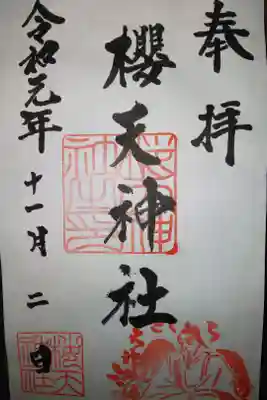 奉拝
櫻天神社
令和元年
十一月二日